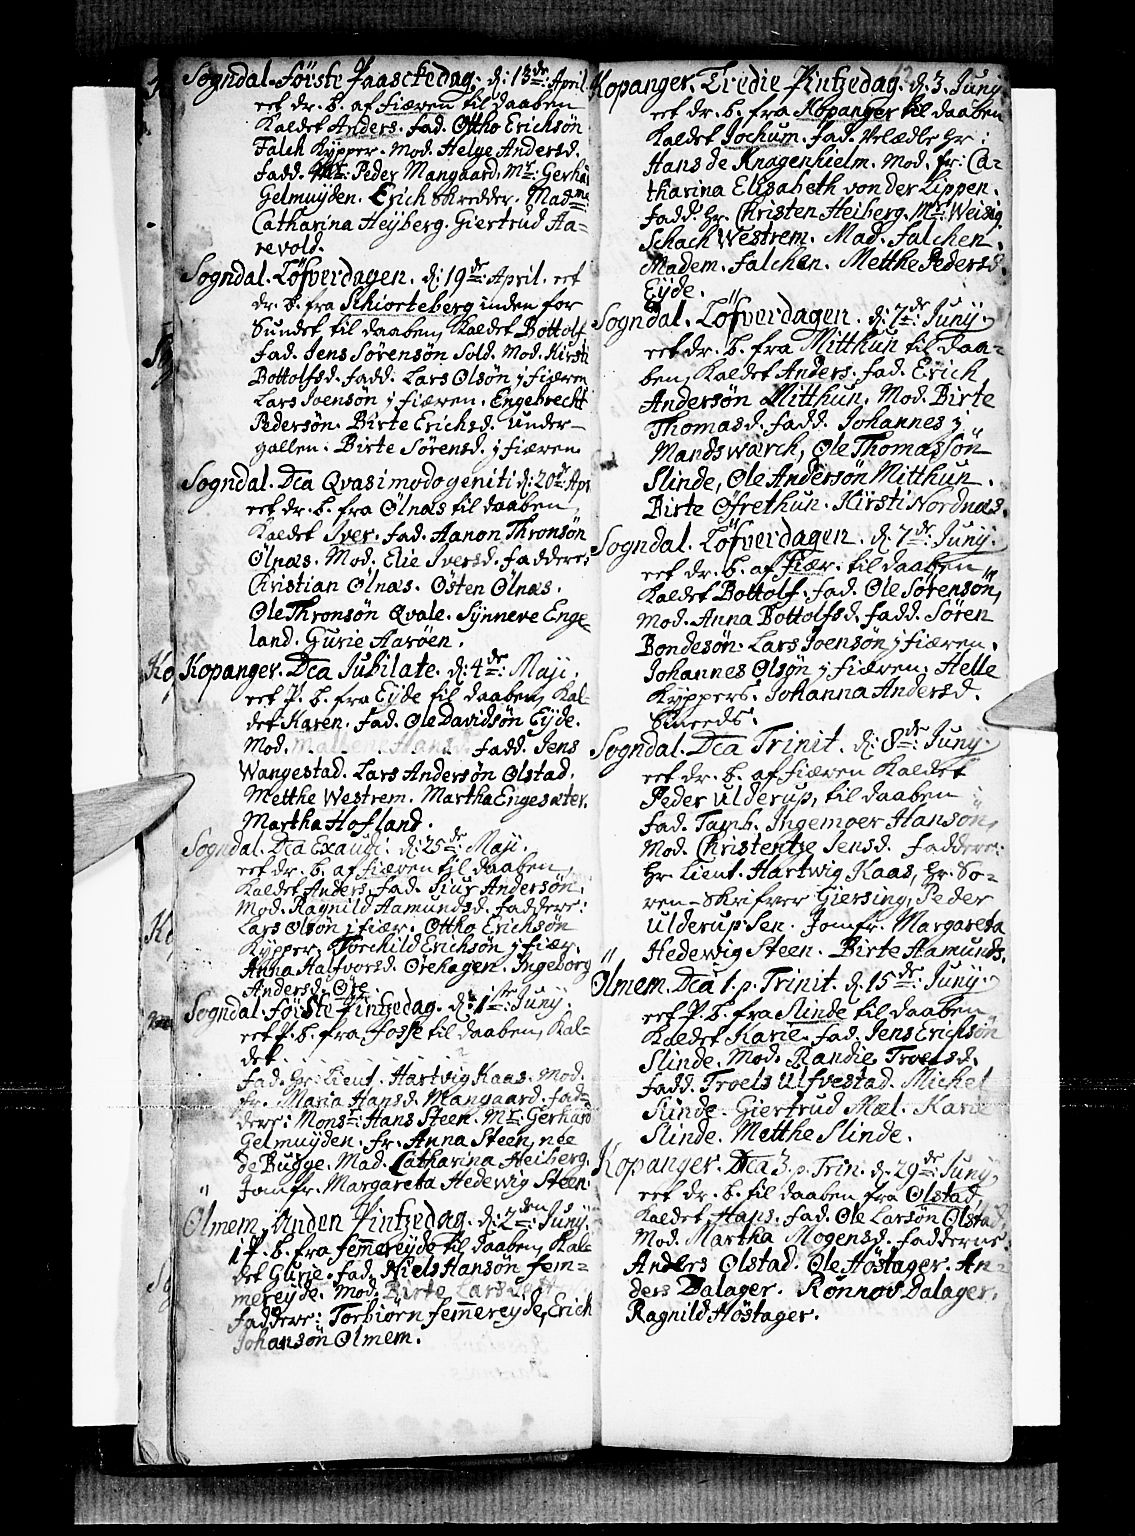 Sogndal. förste Paasckedag. d: 13de: April.
eet dr. b. af fiæren til daaben
Kaldet Anders. fad. Ottho Erichsön
Falch Kypper. Mod. Helge Andersd.
fadd. Mr: Peder Mangaard, Mr: Gerha
Gelmuyden. Erich Skredder. Madme
Catharina Heyberg. Giertrud Aa=
revold.
Sogndal. Löfverdagen. d: 19de: April. eet
dr. b. fra Schiorteberg inden for
Sundet til daaben, Kaldet Bottolf
fad. Jens Sörensön Sold. Mod. Kirsti
Bottolfsd. fadd: Lars Olsön j fiæren
Lars Joensön j fiæren. Engebrecht
Pedersön. Birte Erichsd. under=
gallen. Birte Sörensd. j fiæren.
Sogndal. Dca Qvasimodogeniti d: 20de Apr
eet dr. b. fra Ölnæs til daaben,
Kaldet Iver. fad. Aanon Thronsön
Ölnæs. Mod. Elie Iversd. faddere:
Christian Ölnæs. Osten Ölnæs.
Ole Thronsön Qvale. Synneve Enge=
land. Gurie Aaröen.
Kopanger. Dca Jubilate. d: 4de: Maji.
eet P. b. fra Eyde til daaben, Kal=
det Karen. fad. Ole Davidsön Eyde.
Mod. fadd. Jens
Wangestad. Lars Andersön Olstad.
Metthe Westrem. Martha Engesæter.
Martha Hofland.
Sogndal. Dca Exaudi. d: 25de: Maji.
eet dr. b. af fiæren til daaben,
Kaldet Anders, fad. Siur Andersön.
Mod. Ragnild Aamundsd. faddere:
Lars Olsön j fiær. Ottho Erichsön
Kypper. Torchild Erichsön j fiær.
Anna Halfvorsd. Örehagen. Ingeborg
Andersd. Öre.
Sogndal. förste Pintzedag. d: 1ste: Juny.
eet P. b. fra fosse til daaben, Kal=
det . . . . . . .
fad. Hr: Lieut. Hartvig Kaas. Mod.
fr. Maria Hansd. Mangaard. fad=
dere: Monsr: Hans Steen. Mr: Gerhard
Gelmuyden. fr. Anna Steen, née
de Bugge. Mad. Catharina Heiberg.
Jomfr. Margareta Hedewig Steen.
Olmem. Anden Pintzedag. d: 2den: Juny.
1 P. b. fra femmereyde til daaben, Kal=
det Gurie. fad. Niels Hansön fem=
mereyde. Mod. Birte Larsd.
faddere: Torbiörn femmereyde, Erich
Johansön Olmem.
Kopanger. Tredie Pintzedag. d. 3. Juny
eet dr. b. fra Kopanger til daaben
Kaldet Jochum. fad. Velædle Hr:
Hans de Knagenhielm. Mod. fr: Ca=
tharina Elisabeth von der Lippen.
fadd. Hr. Christen Heiberg. Mr: Weisig.
Schach Westrem. Mad. Falchen.
Madem. Falchen. Metthe Pedersd.
Eyde.
Sogndal. Löfverdagen. d: 7de: Juny.
eet dr. b. fra Mitthun til daa=
ben, Kaldet Anders. fad. Erich
Andersön Mitthun. Mod. Birte
Thomasd. fadd. Johannes j
Mandswarch, Ole Thomassön
Slinde, Ole Andersön Mitthun.
Birte Öfrethun. Kirsti Nordnæs.
Sogndal. Löfverdagen. d: 7de: Juny.
eet dr. b. af fiær. til daaben
Kaldet Bottolf. fad. Ole Sörensön,
Mod. Anna Bottolfsd. fadd. Sören
Bondesön. Lars Joensön j fiæren.
Johannes Olsön j fiæren. Helle
Kyppers. Johanna Andersd.
Smeeds.
Sogndal. Dca Trinit. d: 8de: Juny.
eet dr. b. af fiæren Kaldet
Peder Ulderup, til daaben
fad. Tamb. Ingemoer Hansön,
Mod. Christentze Jensd. faddere:
Hr Lieut. Hartwig Kaas, Hr. So=
ren-Skrifver Giersing, Peder
Ulderup Sen. Jomfr. Margareta
Hedewig Steen. Birte Aamunds.
Olmem. Dca 1. p. Trinit. d. 15de: Juny.
eet P. b. fra Slinde til daaben
Kaldet Karie. fad. Jens Erichsön
Slinde. Mod. Randie Troelsd.
fadd. Troels Ulfvestad. Michel
Slinde. Giertrud Mæl. Karie
Slinde. Metthe Slinde.
Kopanger. Dca 3. p. Trin. d. 29de: Juny.
eet dr. b. til daaben fra Olstad,
Kaldet Hans. fad. Ole Larsön Olstad,
Mod. Martha Mogensd. fadderne:
Anders Olstad. Ole Höstager. An=
ders Dalager. Rönnov Dalager.
Ragnild Höstager.